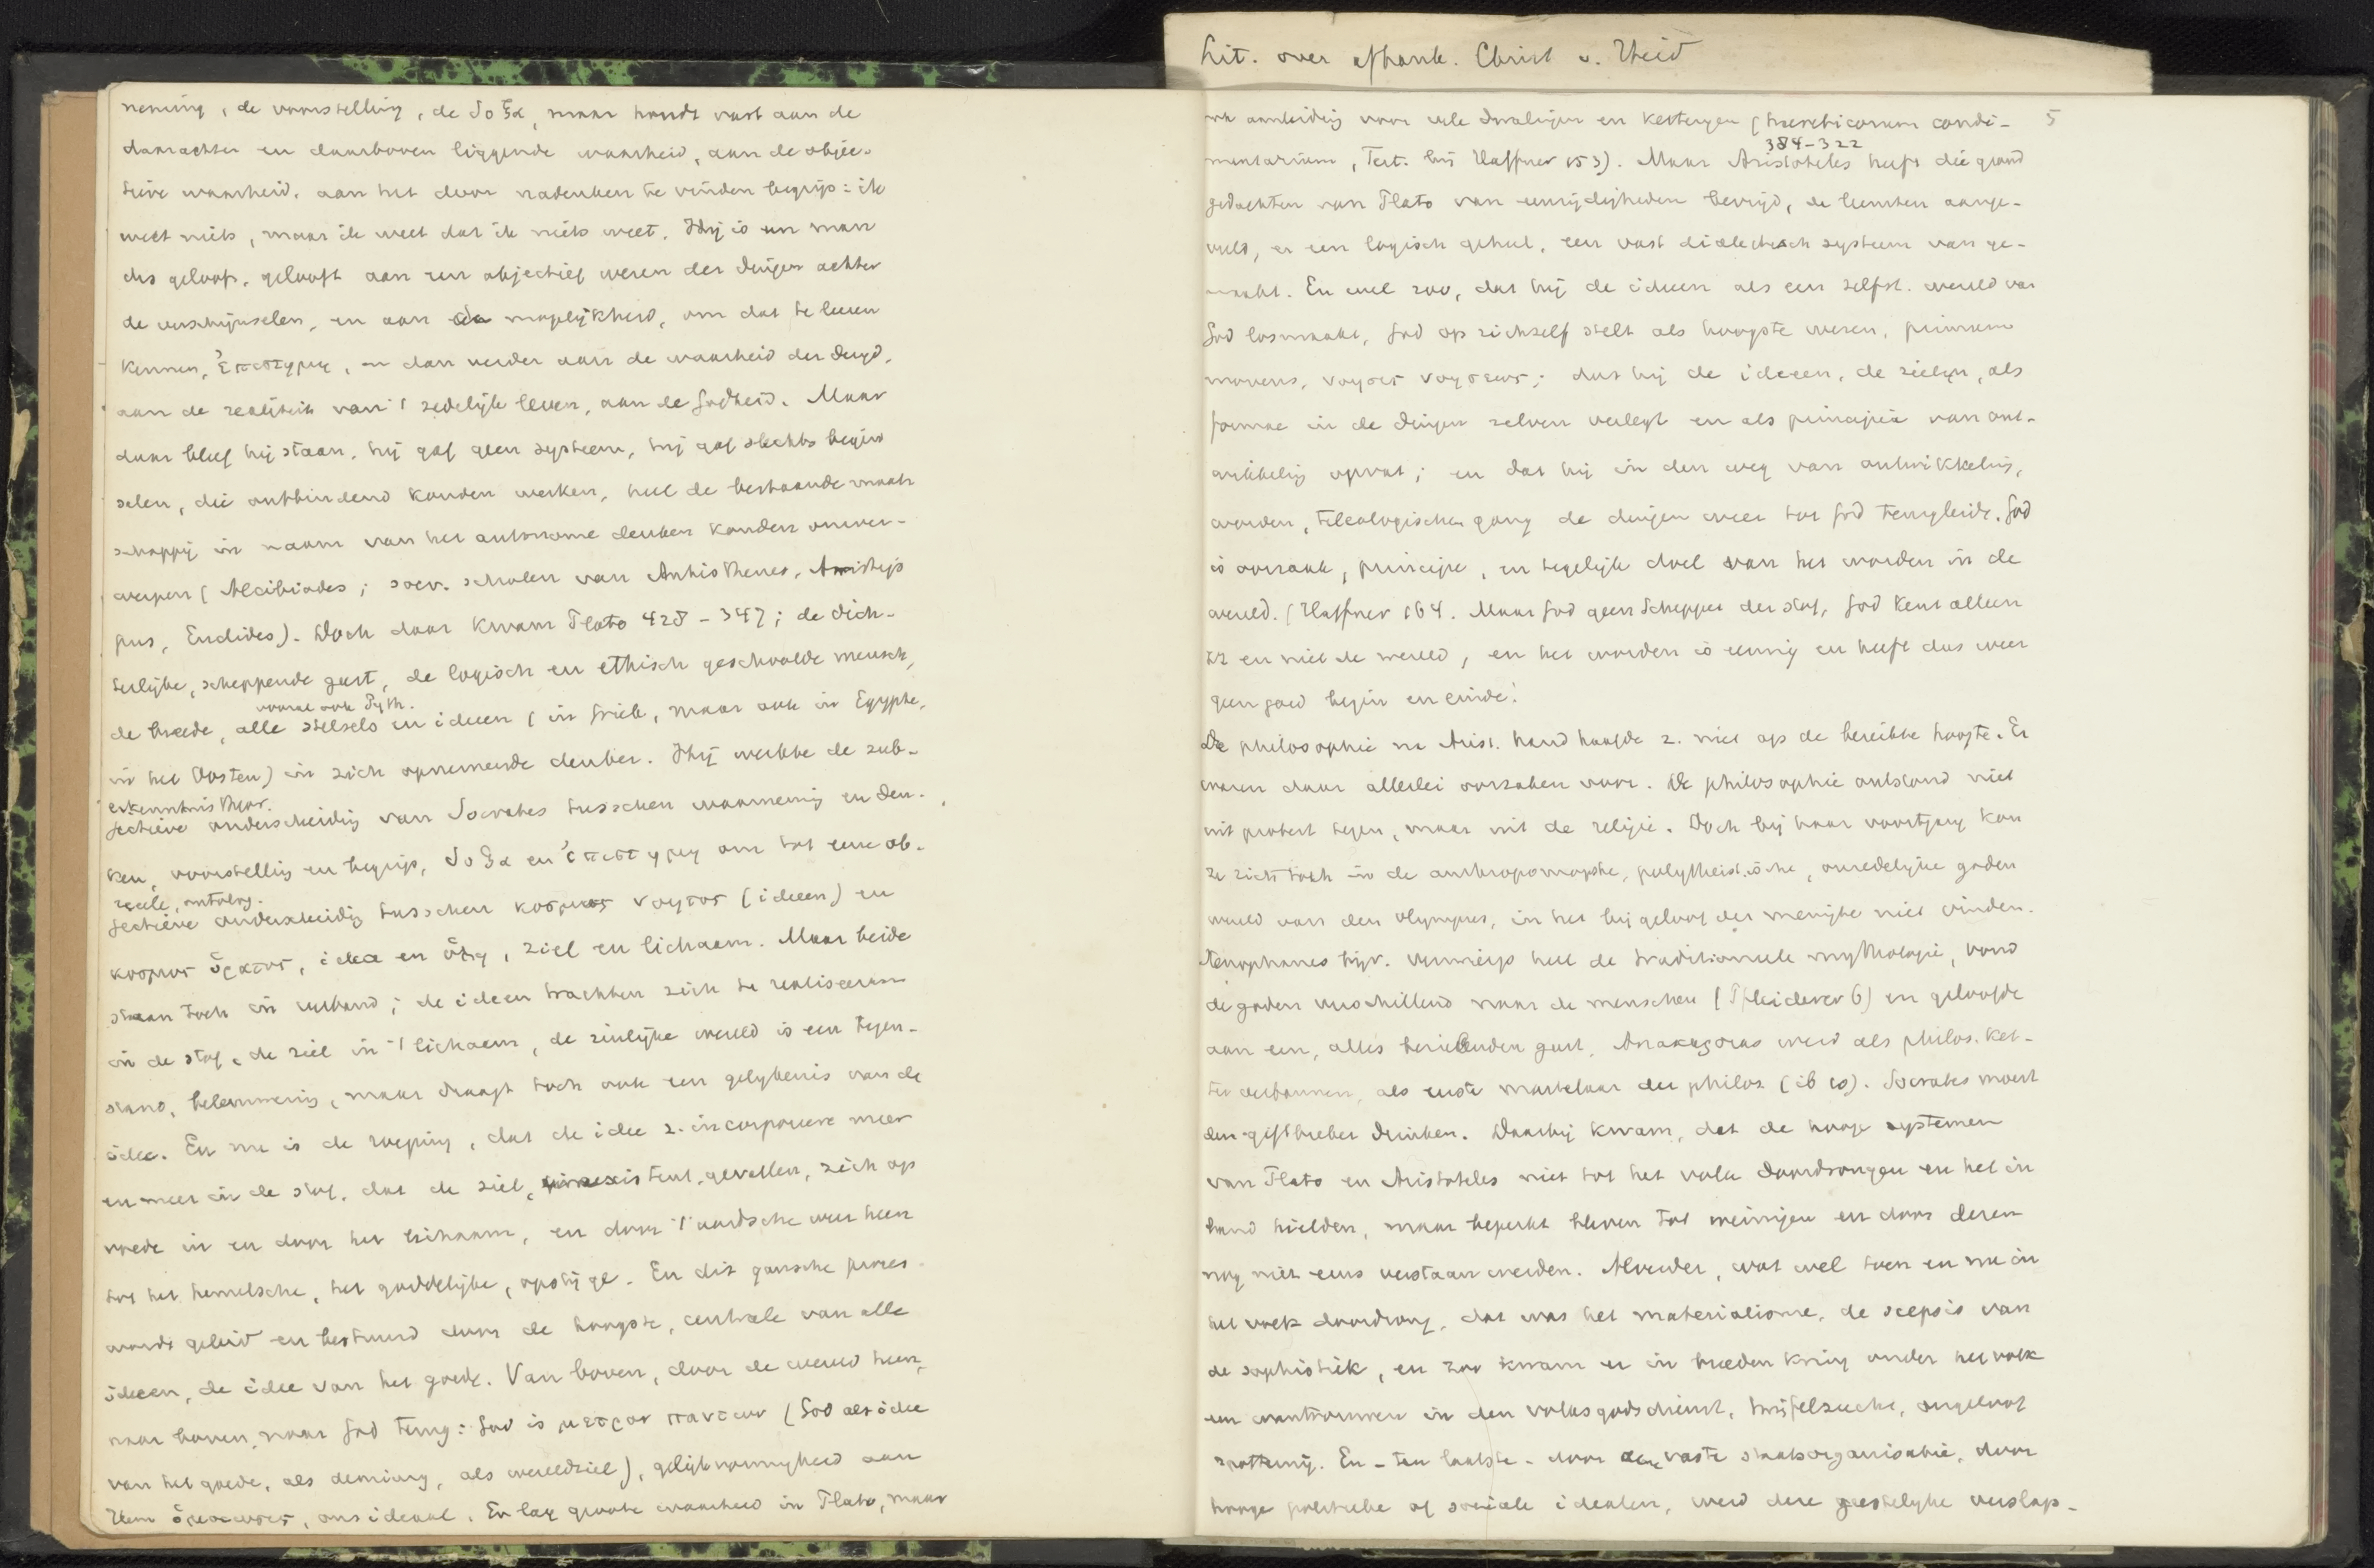 neming, de voorstelling, de δοξα, maar houdt vast aan de
daarachter en daarboven liggende waarheid, aan de objec-
tieve waarheid, aan het door nadenken te vinden begrip: ik
weet niets, maar ik weet dat ik niets weet. Hij is een man
des geloofs, gelooft aan een objectief wezen der dingen achter
de verschijnselen, en aan de mogelijkheid, om dat te leeren
kennen, ἐπιστημη, en dan verder aan de waarheid der deugd,
aan de realiteit van 't zedelijk leven, aan de Godheid. Maar
daar bleef hij staan, hij gaf geen systeem, hij gaf slechts begin
selen, die ontbindend konden werken, heel de bestaande maat
schappij in naam van het autonome denken konden omver-
werpen (Alcibiades; soev. scholen van Antisthenes, Aristip
pus, Euclides). Doch daar kwam Plato 428-347; de dich-
terlijke, scheppende geest, de logisch en ethisch geschoolde mensch,
vooral ook Pyth.
de breede, alle stelsels en ideeen (in Griek, maar ook in Egypte,
in het Oosten) in zich opnemende denker. Hij werkte de sub-
erkenntnistheor.
jectieve onderscheiding van Socrates tusschen waarneming en den-
ken, voorstelling en begrip, δοξα en ἐπιστημη om tot eene ob-
reele, ontolog.
jectieve onderscheiding tusschen κοσμος νοητος (ideeen) en
κοσμος ὁρατος, idea en ὑλη, ziel en lichaam. Maar beide
staan toch in verband; de ideeen trachten zich te realiseeren
in de stof, de ziel in 't lichaam, de zinlijke wereld is een tegen-
stand, belemmering, maar draagt toch ook een gelijkenis van de
idee. En nu is de roeping, dat de idee z. incorporeere meer
en meer in de stof, dat de ziel, gevallen, zich op
voede in en door het lichaam, en door 't aardsche weer heen
tot het hemelsche, het goddelijke, opstijge. En dit gansche proces
wordt geleid en bestuurd door de hoogste, centrale van alle
ideeen, de idee van het goede. Van boven, door de wereld heen,
naar boven, naar God terug: God is μετρον παντων (God als idee
van het goede, als demiurg, als wereldziel), gelijkvormigheid aan
Hem ὁμοιωσις, ons ideaal. Er lag groote waarheid in Plato, maar
Lit. over afhank. Christ v. Heid
5
ook aanleiding voor vele dwalingen en ketterijen (haereticorum condi-
384-322
mentarium, Tert. bij Haffner 153). Maar Aristoteles heeft die grond
gedachten van Plato van eenzijdigheden bevrijd, de leemten aange-
vuld, er een logisch geheel, een vast dialectisch systeem van ge-
maakt. En wel zoo, dat hij de ideeen als een zelfst. wereld van
God losmaakt, God op zichzelf stelt als hoogste wezen, primum
movens, νοησις νοησεως; dat hij de ideeen, de zielen, als
formae in de dingen zelven verlegt en als principia van ont-
wikkeling opvat; en dat hij in den weg van ontwikkeling,
worden, teleologischen gang de dingen weer tot God terugleidt. God
is oorzaak, principe, en tegelijk doel van het worden in de
wereld. (Haffner 164. Maar God geen Schepper der stof, God kent alleen
zz en niet de wereld, en het worden is eeuwig en heeft dus weer
geen goed begin en einde!
De philosophie na Arist. handhaafde z. niet op de bereikte hoogte. Er
waren daar allerlei oorzaken voor. De philosophie ontstond niet
uit protest tegen, maar uit de religie. Doch bij haar voortgang kon
ze zich toch in de anthropomorphe, polytheistische, onzedelijke goden
wereld van den Olympus, in het bijgeloof der menigte niet vinden.
Xenophanes bijv. verwierp heel de traditioneele mythologie, vond
de goden verschillend naar de menschen (Pfleiderer 6) en geloofde
aan een, alles bezielenden geest. Anaxagoras werd als philos. ket-
ter verbannen, als eerste martelaar der philos. (ib 10). Socrates moest
den giftbeker drinken. Daarbij kwam, dat de hooge systemen
van Plato en Aristoteles niet tot het volk doordrongen en het in
band hielden, maar beperkt bleven tot weinigen en door dezen
nog niet eens verstaan werden. Alverder, wat wel toen en nu in
het volk doordrong, dat was het materialisme, de scepsis van
de sophistiek, en zoo kwam er in breeden kring onder het volk
een wantrouwen in den volksgodsdienst, twijfelzucht, ongeloof
spotternij. En - ten laatste - door vaste staatsorganisatie, door
hooge politieke of sociale idealen, werd deze geestelijke verslap-